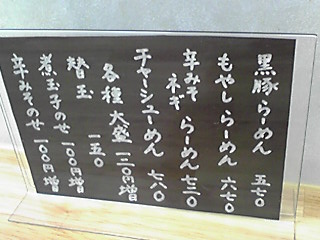 黒豚らーめん 五七〇
もやしらーめん 六七〇
辛みそネギらーめん 七三〇
チャーシューめん 七八〇
各種大盛 一二〇円増
替玉 一五〇
煮玉子のせ 一〇〇円増
辛みそのせ 一〇〇円増